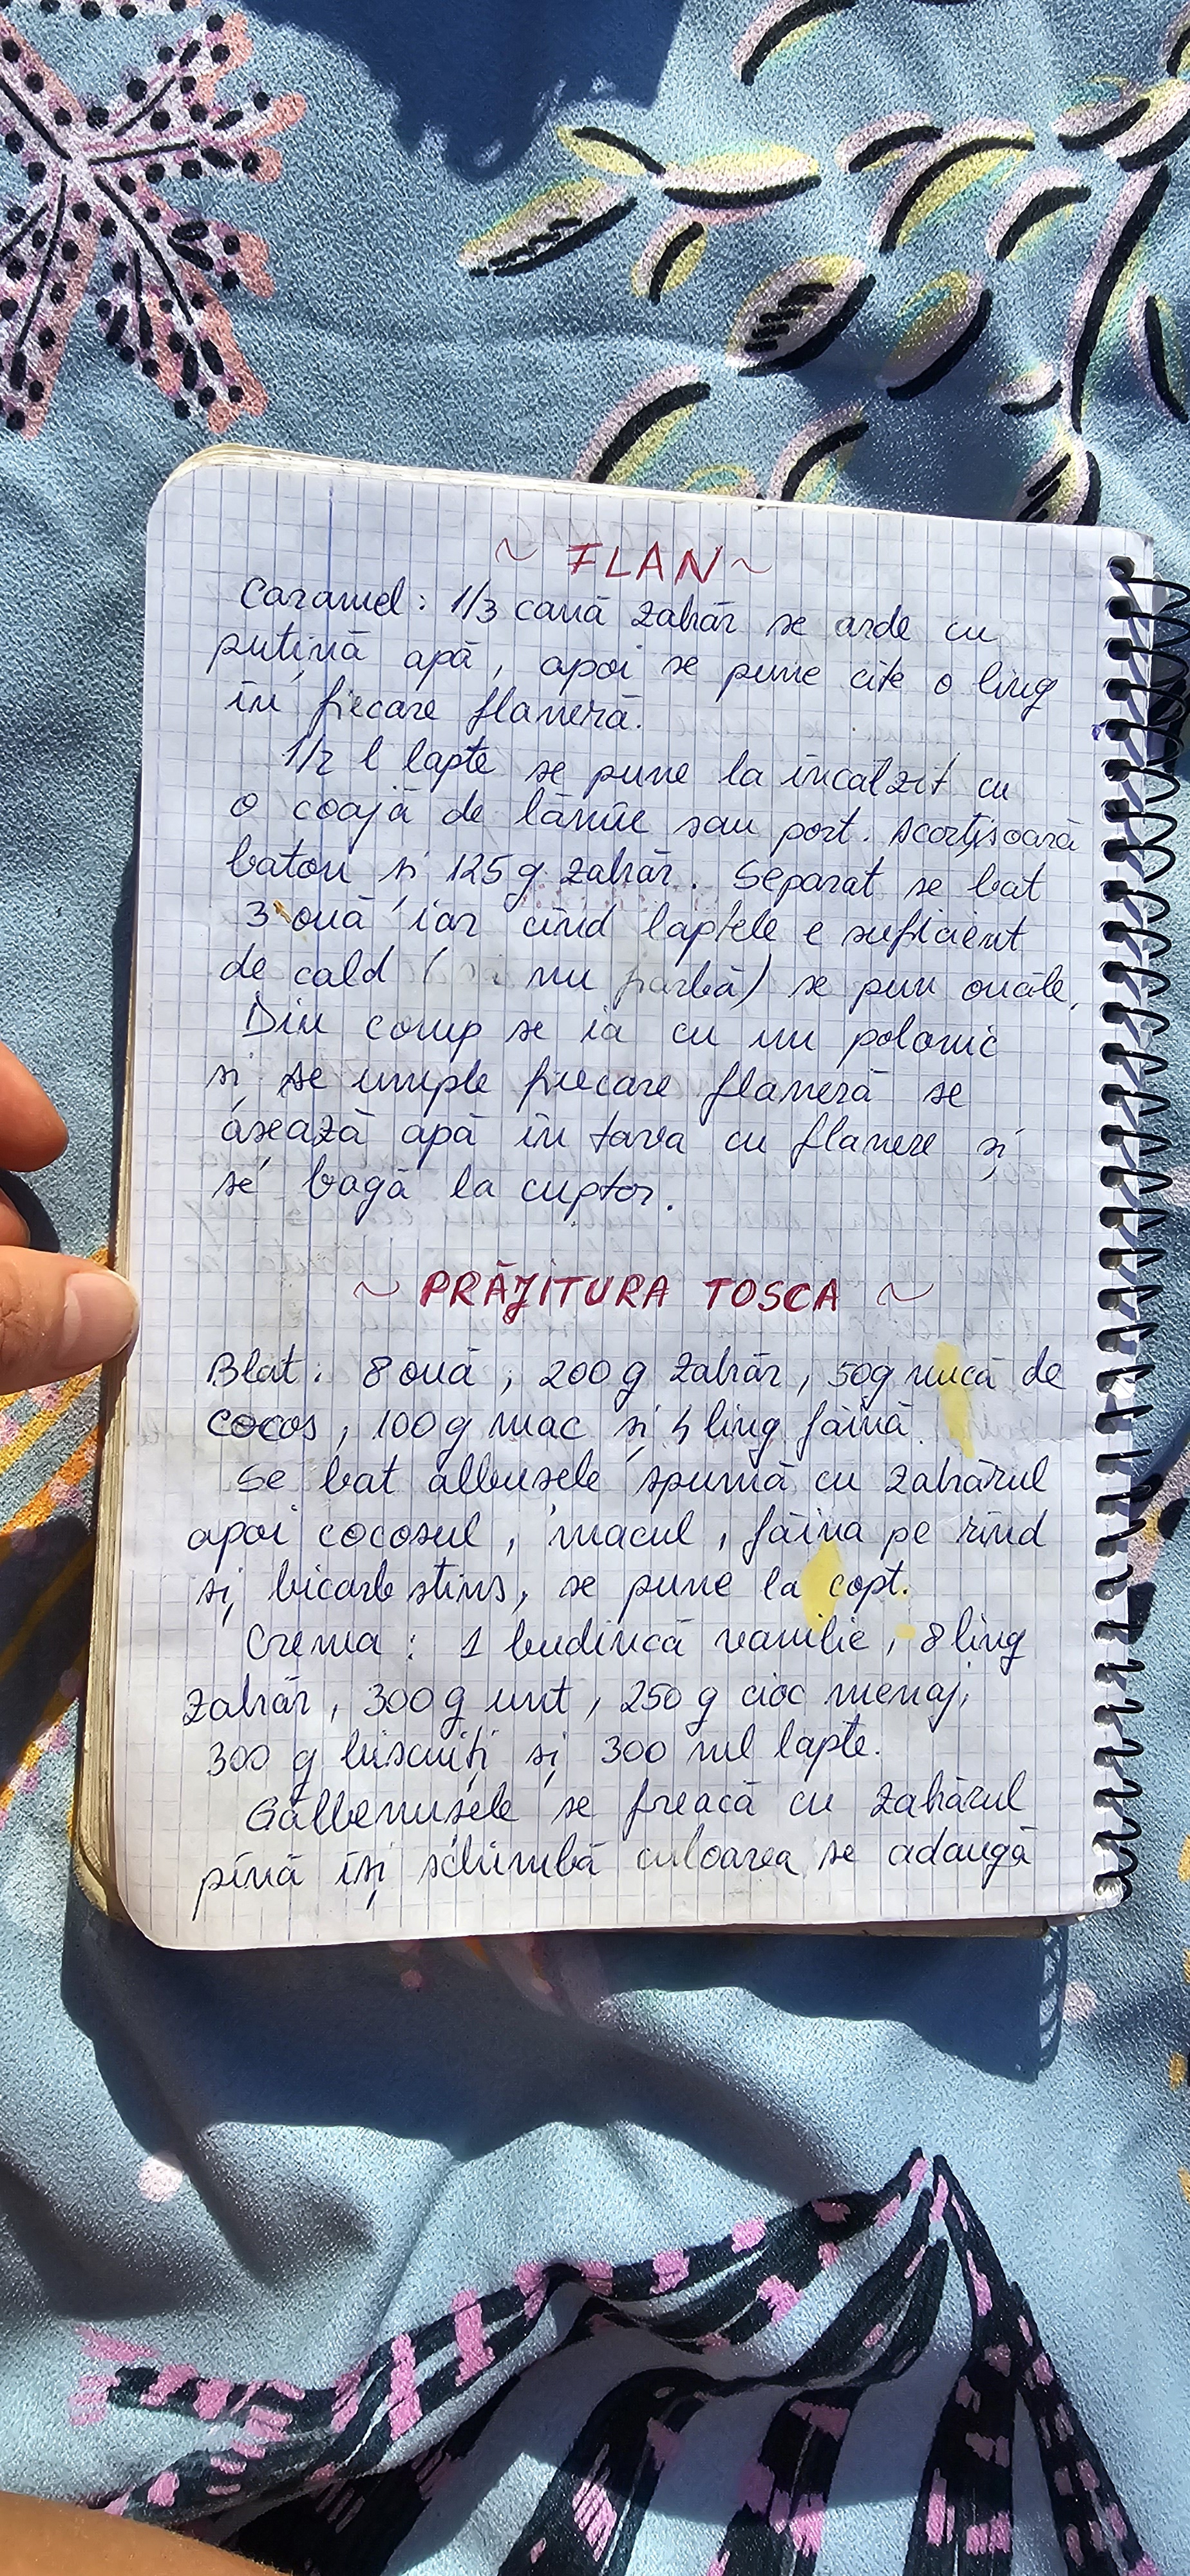 ~ FLAN ~
Caramel: 1/3 cană zahăr se arde cu
puțină apă, apoi se pune cîte o ling
în fiecare flaneră.
1/2 l lapte se pune la încălzit cu
o coajă de lămîe sau port. scorțișoară
baton și 125 g zahăr. Separat se bat
3 ouă iar cînd laptele e suficient
de cald ( nu fiarbă) se pun ouăle,
Din comp se ia cu un polonic
și se umple fiecare flaneră se
așează apă în tava cu flanere și
se bagă la cuptor.
~ PRĂJITURA TOSCA ~
Blat: 8 ouă, 200 g zahăr, 50g nucă de
cocos, 100 g mac și 4 ling făină
Se bat albușele spumă cu zahărul
apoi cocosul, macul, făina pe rînd
și bicarb stins, se pune la copt.
Crema: 1 budincă vanilie, 8 ling
zahăr, 300 g unt, 250 g cioc menaj,
300 g biscuiți și 300 ml lapte.
Gălbenușele se freacă cu zahărul
pînă își schimbă culoarea se adaugă